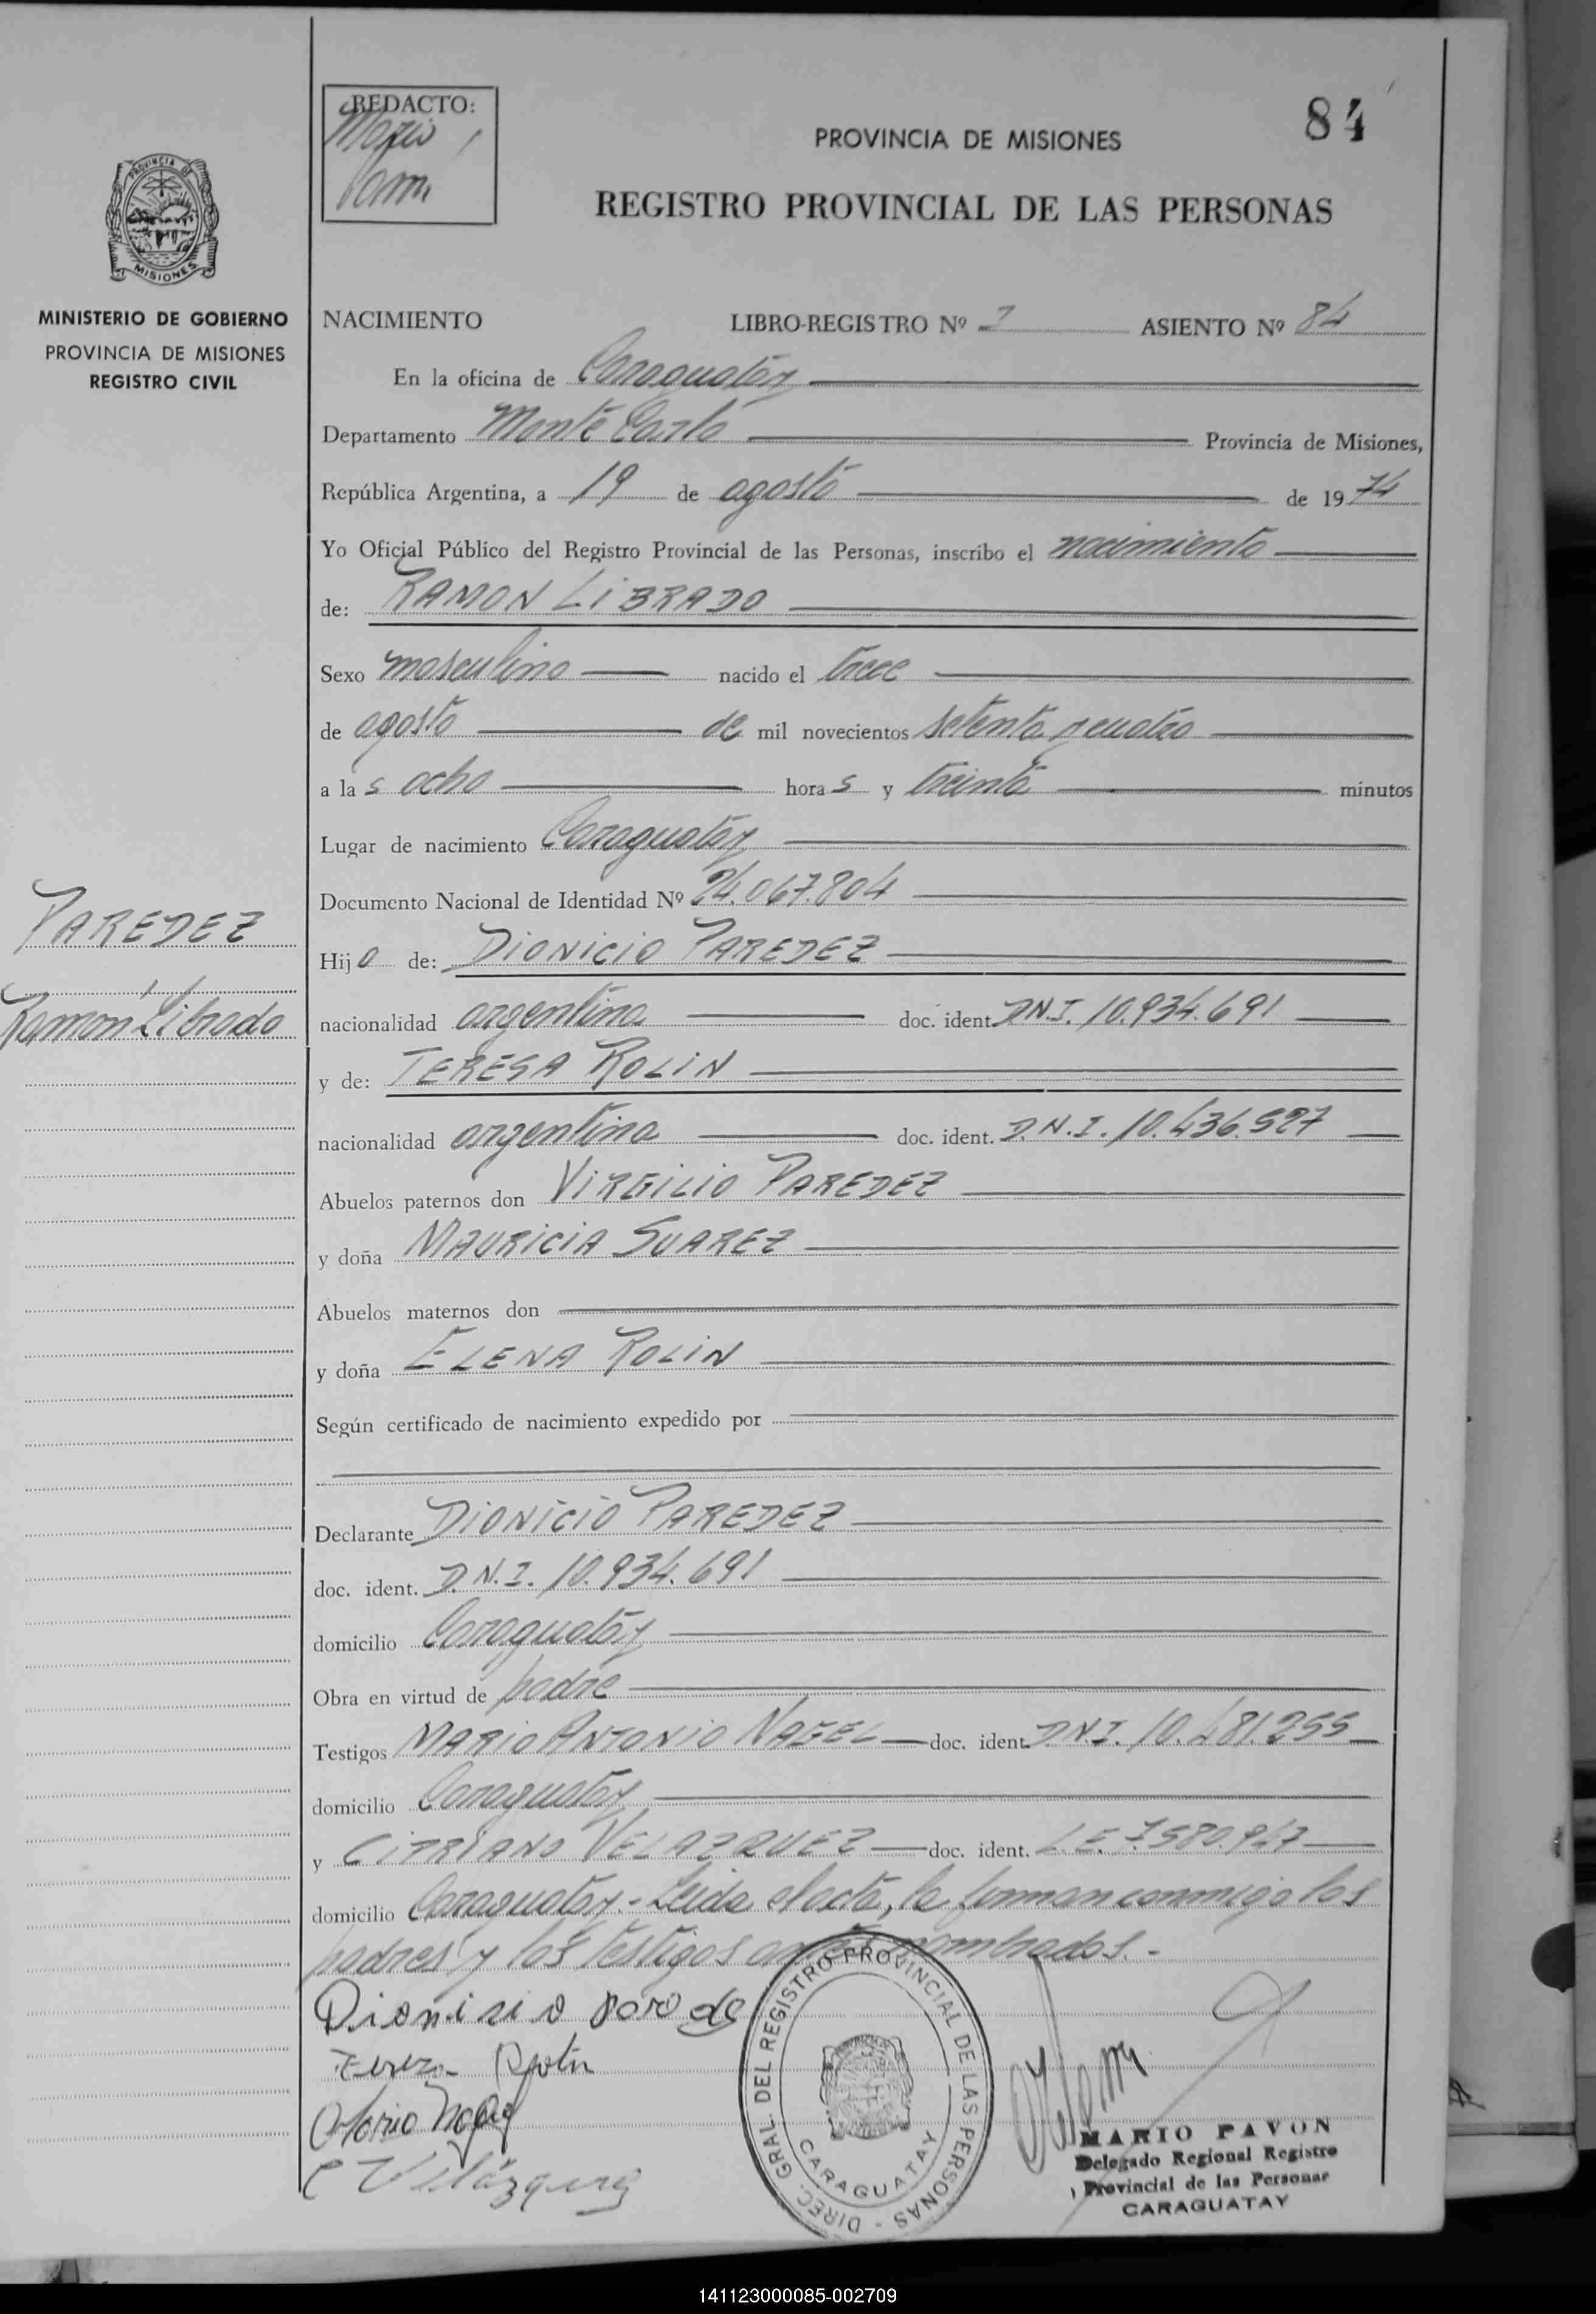 REDACTO:
Mario
Pavon
84
PROVINCIA DE MISIONES
REGISTRO PROVINCIAL DE LAS PERSONAS
PROVINCIA DE
MISIONES
MINISTERIO DE GOBIERNO
PROVINCIA DE MISIONES
REGISTRO CIVIL
NACIMIENTO LIBRO-REGISTRO Nº ASIENTO Nº 84
En la oficina de Caraguatay
Departamento Monte Carlo Provincia de Misiones,
República Argentina, a 19 de agosto de 1974
Yo Oficial Público del Registro Provincial de las Personas, inscribo el nacimiento
de: RAMON LIBRADO
Sexo masculino nacido el trece
de agosto de mil novecientos setenta y cuatro
a las ocho horas y treinta minutos
Lugar de nacimiento Caraguatay
Documento Nacional de Identidad Nº 24.067.804
PAREDEZ
Ramon Librado
Hijo de: DIONICIO PAREDEZ
nacionalidad argentina doc. ident. D.N.I. 10.934.691
y de: TERESA ROLIN
nacionalidad argentina doc. ident. D.N.I. 10.436.527
Abuelos paternos don VIRGILIO PAREDEZ
y doña MAURICIA SUAREZ
Abuelos maternos don
y doña ELENA ROLIN
Según certificado de nacimiento expedido por
Declarante DIONICIO PAREDEZ
doc. ident. D.N.I. 10.934.691
domicilio Caraguatay
Obra en virtud de padre
Testigos MARIO ANTONIO NAGEL doc. ident. D.N.I. 10.481.255
domicilio Caraguatay
y CIPRIANO VELAZQUEZ doc. ident. L.E. 7.580.947
domicilio Caraguatay.- Leida el acta, la firman conmigo los
padres y los testigos antes nombrados.-
Dionisio parede
Tereza Rolin
Mario Nagel
C Velázquez
DIREC. GRAL. DEL REGISTRO PROVINCIAL DE LAS PERSONAS -
CARAGUATAY
MARIO PAVON
Delegado Regional Registro
Provincial de las Personas
CARAGUATAY
141123000085-002709